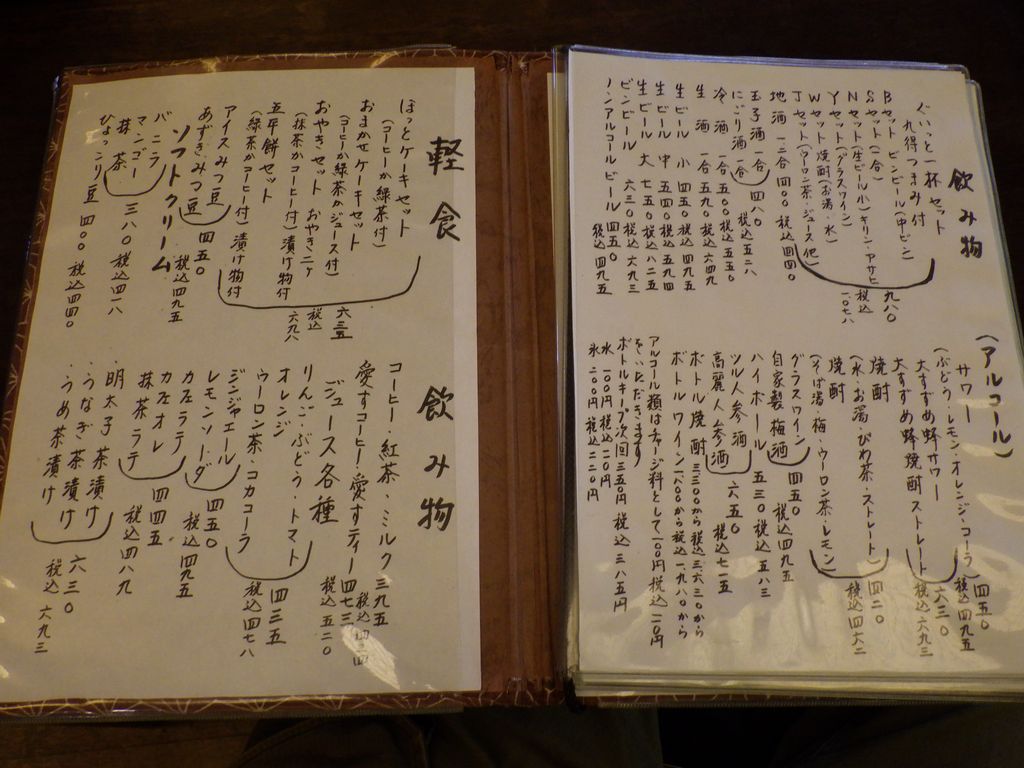 飲み物
ぐいっと一杯セット
九得つまみ付
Bセット ビンビール(中ビン)
Sセット(一合)
Nセット(生ビール小)キリン・アサヒ
Yセット(グラスワイン)
Wセット 焼酎(お湯・水)
Jセット(ウーロン茶・ジュース他)
九八〇
税込一〇七八
地酒 二合 四〇〇 税込四四〇
玉子酒 一合
にごり酒 一合
四八〇
税込五二八
冷酒 一合 五〇〇 税込五五〇
生酒 一合 五九〇 税込六四九
生ビール 小 四五〇 税込四九五
生ビール 中 五四〇 税込五九四
生ビール 大 七五〇 税込八二五
ビンビール 六三〇 税込六九三
ノンアルコールビール 四五〇
税込四九五
(アルコール)
サワー
(ぶどう・レモン・オレンジ・コーラ)
四五〇
税込四九五
大すずめ蜂サワー
大すずめ蜂焼酎ストレート
六三〇
税込六九三
焼酎
(水・お湯・びわ茶・ストレート)
焼酎
(そば湯・梅・ウーロン茶・レモン)
四二〇
税込四六二
グラスワイン
自家製梅酒
四五〇
税込四九五
ハイボール 五三〇 税込五八三
ツル人参酒
高麗人参酒
六五〇
税込七一五
ボトル焼酎 三、三〇〇から 税込三、六三〇から
ボトルワイン 一、八〇〇から 税込一、九八〇から
アルコール類はチャージ料として一〇〇円税込一一〇円
をいただきます
ボトルキープ次回三五〇円 税込三八五円
水 一〇〇円 税込一一〇円
氷 二〇〇円 税込二二〇円
軽食
ほっとケーキセット
(コーヒーか緑茶付)
おまかせケーキセット
(コーヒーか緑茶かジュース付)
おやきセット おやき二ヶ
(抹茶かコーヒー付)漬け物付
五平餅セット
(緑茶かコーヒー付)漬け物付
六三五
税込
六九八
アイスみつ豆
あずきみつ豆
四五〇
税込四九五
ソフトクリーム
バニラ
マンゴー
抹茶
三八〇 税込四一八
ひょっこり豆 四〇〇 税込四四〇
飲み物
コーヒー・紅茶・ミルク 三九五
税込四三四
愛すコーヒー・愛すティー 四七三
税込五二〇
ジュース各種
りんご・ぶどう・トマト
オレンジ
ウーロン茶・コカコーラ
四三五
税込四七八
ジンジャエール
レモンソーダ
四五〇
税込四九五
カフェラテ
カフェオレ
抹茶ラテ
四四五
税込四八九
・明太子茶漬け
・うなぎ茶漬け
・うめ茶漬け
六三〇
税込六九三